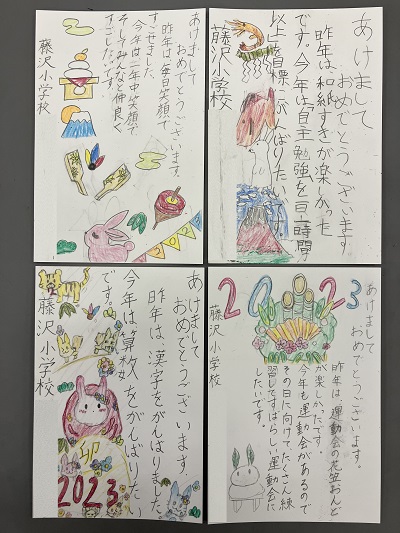 あけまして
おめでとうございます。
昨年は毎日笑顔で
すごせました。
今年は一年中笑顔で
そしてみんなと仲良く
すごしたいです。
藤沢小学校
2023
あけまして
おめでとうございます
昨年は、和紙すきが楽しかった
です。今年は「自主勉強を日一時間
以上」を目標にがんばりたいです。
藤沢小学校
あけまして
おめでとうございます。
昨年は、漢字をがんばりました
今年は算数をがんばりたい
です。
藤沢小学校
卯
2023
2023
あけまして
おめでとうございます。
昨年は、運動会の花笠おんど
が楽しかったです。
今年も運動会があるので
その日に向けてたくさん練
習してすばらしい運動会に
したいです。
藤沢小学校